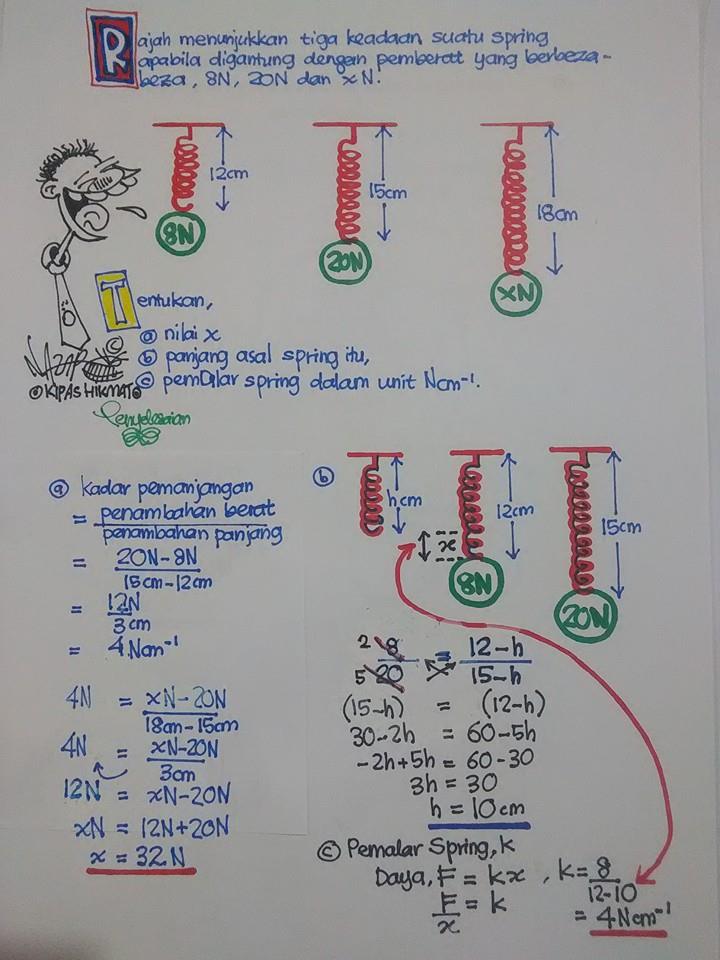 Rajah menunjukkan tiga keadaan suatu spring
apabila digantung dengan pemberatt yang berbeza-
beza, 8N, 20N dan xN.
12cm
15cm
18cm
8N
20N
XN
Tentukan,
ⓐ nilai x
ⓑ panjang asal spring itu,
ⓒ pemalar spring dalam unit Ncm⁻¹.
©
© KIPAS HIKMAT
Penyelesaian
ⓐ kadar pemanjangan
= penambahan berat
penambahan panjang
= 20N-8N
15cm-12cm
= 12N
3cm
= 4Ncm⁻¹
4N = xN-20N
18cm-15cm
4N = xN-20N
3cm
12N = xN-20N
xN = 12N+20N
x = 32N
ⓑ
h cm
12cm
15cm
x
8N
20N
2 8 = 12-h
5 20 15-h
(15-h) = (12-h)
30-2h = 60-5h
-2h+5h = 60-30
3h = 30
h = 10cm
ⓒ Pemalar Spring, k
Daya, F = kx , k = 8
12-10
F = k
x
= 4Ncm⁻¹